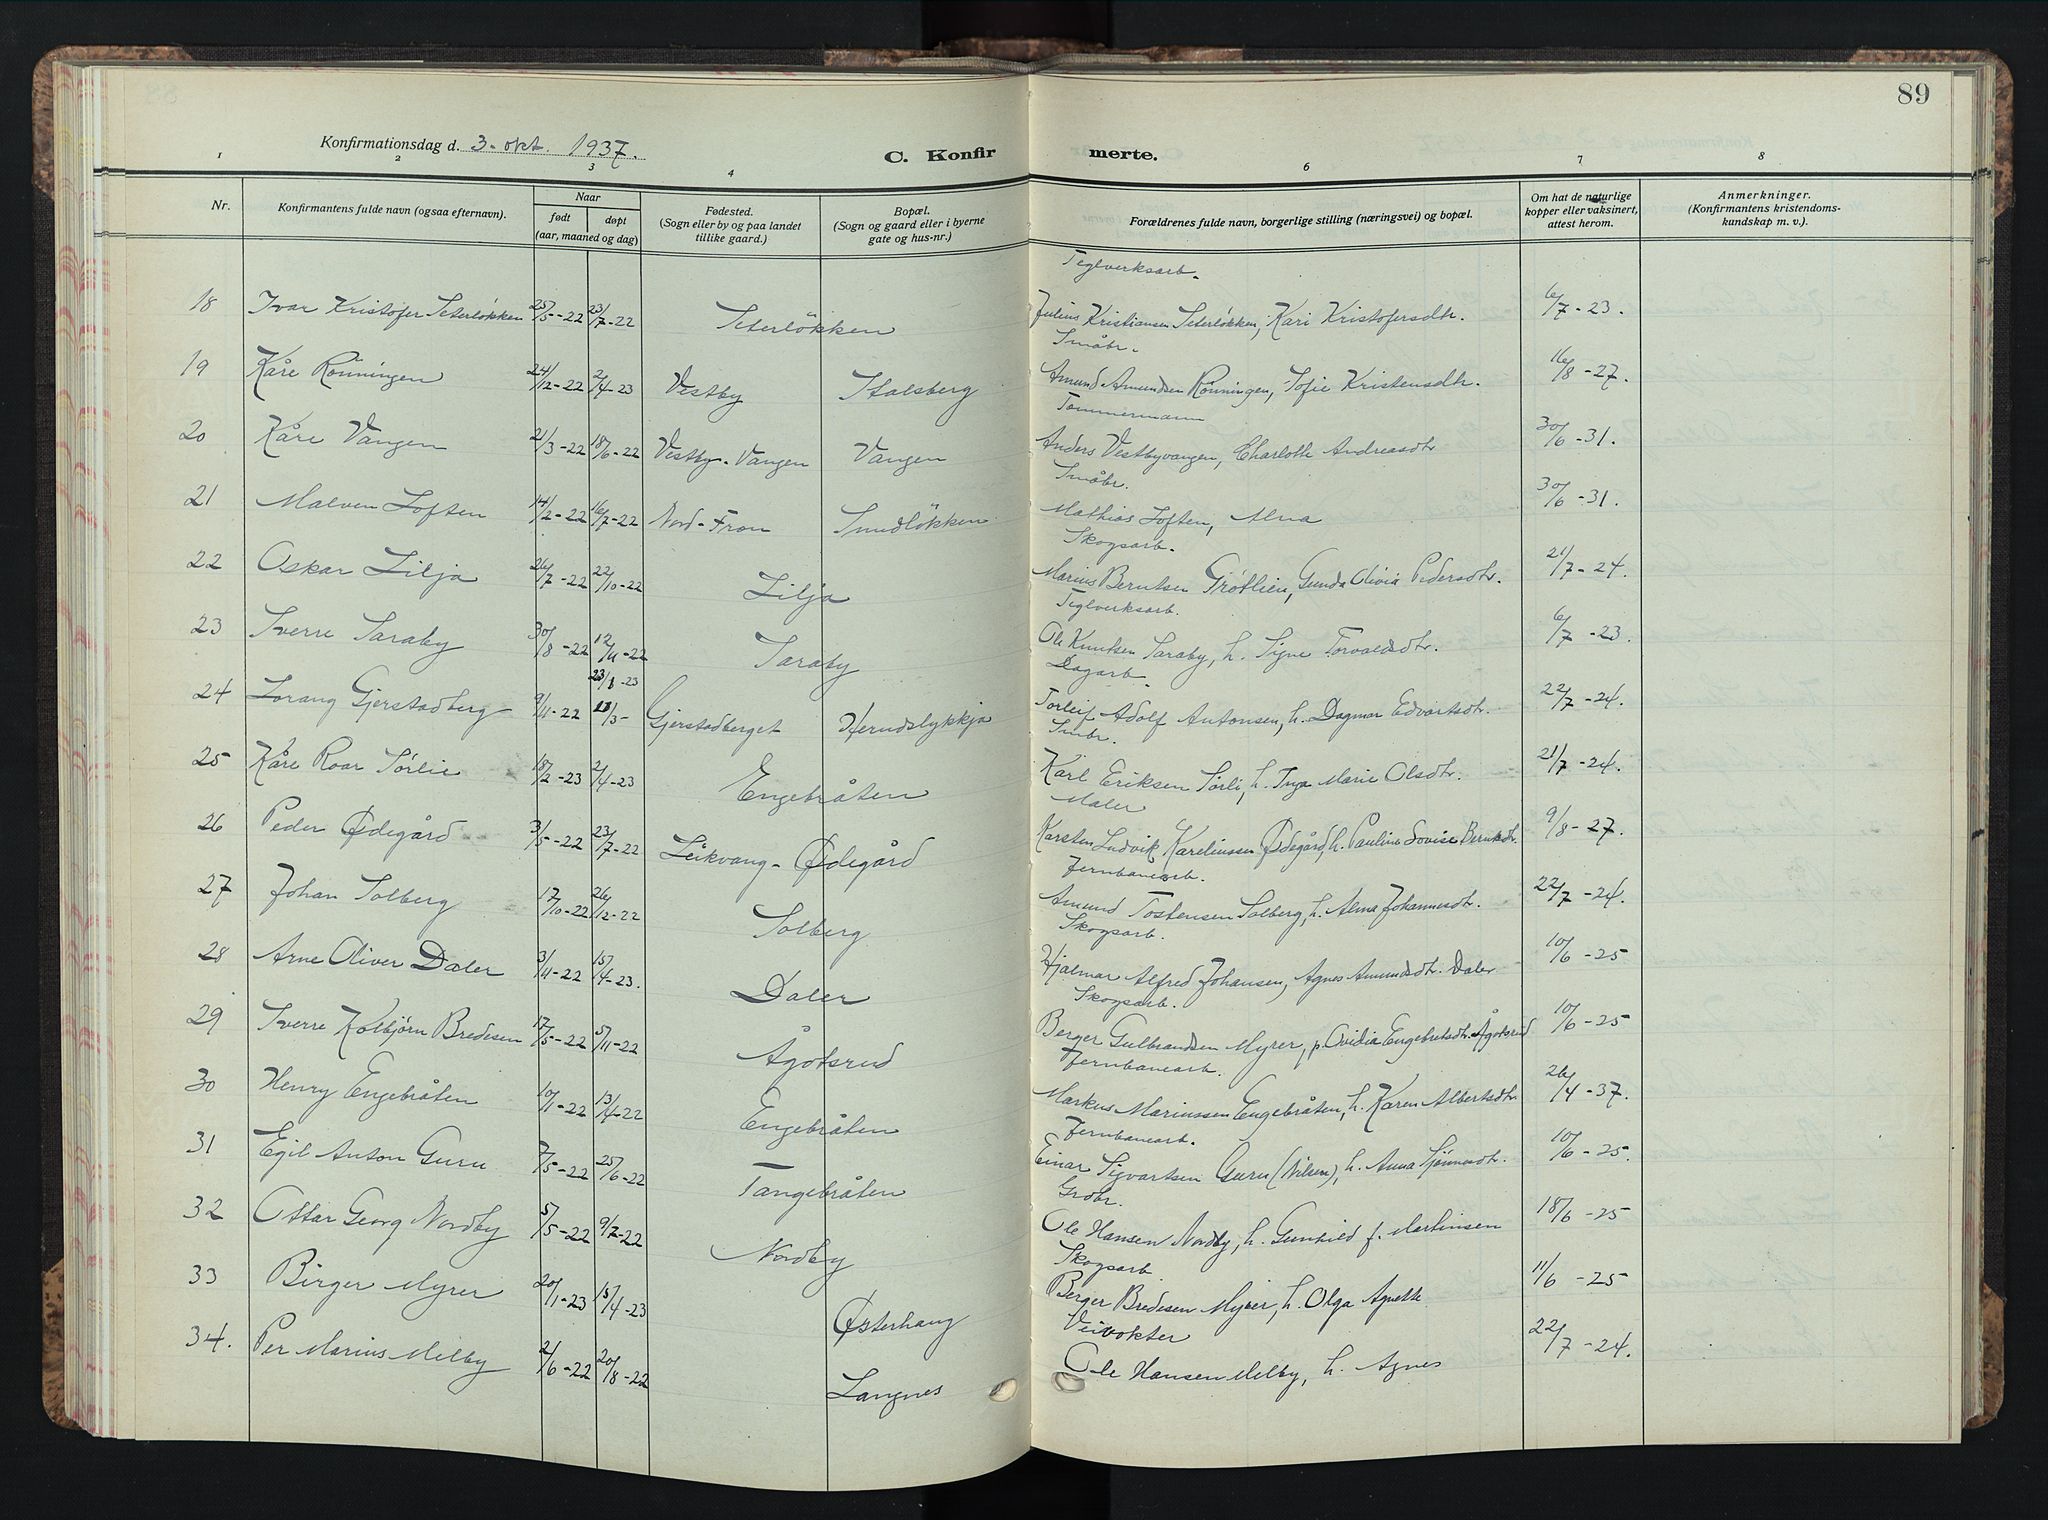 89
Konfirmationsdag d. 3. okt. 1937.
C. Konfirmerte.
1 2 3 4 6 7 8
Nr. Konfirmantens fulde navn (ogsaa efternavn). Naar født døpt (aar, maaned og dag) Fødested. (Sogn eller by og paa landet tillike gaard.) Bopæl. (Sogn og gaard eller i byerne gate og hus-nr.) Forældrenes fulde navn, borgerlige stilling (næringsvei) og bopæl. Om hat de naturlige kopper eller vaksinert, attest herom. Anmerkninger. (Konfirmantens kristendoms-kundskap m. v.).
Teglverksarb.
18 Ivar Kristofer Seterløkken 25/5-22 23/7-22 Seterlökken Julius Kristiansen Seterløkken, Kari Kristofersdtr. 6/7-23.
Småbr.
19 Kåre Rönningen 24/12-22 2/4-23 Vestby Stalsberg Amund Amundsen Rönningen, Sofie Kristensdtr. 16/8-27.
Tømmermann
20 Kåre Vangen 21/3-22 18/6-22 Vestby-Vangen Vangen Anders Vestbyvangen, Charlotte Andreasdtr 30/6-31.
Småbr.
21 Malven Loften 14/2-22 16/7-22 Nord-Fron Smedlökken Mathias Loften, Alma 30/6-31.
Skogsarb.
22 Oskar Lilja 26/7-22 22/10-22 Lilja Marius Berntsen Grøtlien, Gunda Olivia Pedersdtr. 21/7-24.
Teglverksarb.
23 Sverre Saraby 30/8-22 12/11-22 Saraby Ole Knutsen Saraby, h. Signe Torvaldsdtr. 6/7-23.
Dagarb.
23/1-23
24 Lorang Gjerstadberg 9/11-22 11/3- Gjerstadberget Herudslykkja Torleif Adolf Antonsen, h. Dagmar Edvartsdtr. 22/7-24.
Smbr.
25 Kåre Roar Sørlie 18/2-23 2/4-23 Engebråten Karl Eriksen Sørli, h. Inga Marie Olsdtr. 21/7-24.
Maler
26 Peder Ødegård 3/5-22 23/7-22 Leikvang-Ødegård Karsten Ludvik Kareliussen Ødegård, h. Pauline Lovise Berntsdtr. 9/8-27.
Jernbanearb.
27 Johan Solberg 17/10-22 26/12-22 Solberg Amund Tostensen Solberg, h. Alma Johannesdtr. 22/7-24.
Skogsarb.
28 Arne Oliver Daler 3/11-22 15/4-23. Daler Hjalmar Alfred Johansen, Agnes Amundsdtr. Daler 10/6-25
Skogsarb.
29 Sverre Kolbjørn Bredesen 17/5-22 5/11-22 Ågotsrud Berger Gulbrandsen Myrer, p. Ovidia Engebretsdtr. Ågotsrud 10/6-25
Jernbanearb.
30 Henry Engebråten 10/1-22 13/4-22 Engebråten Markus Mariussen Engebråten, h. Karen Albertsdtr. 26/4-37.
Jernbanearb.
31 Egil Anton Guru 7/5-22 25/6-22 Tangebråten Einar Sigvartsen Guru (Nilsen), h. Anna Sjønnesdtr. 10/6-25.
Grdbr.
32 Ottar Georg Nordby 5/5-22 9/7-22 Nordby Ole Hansen Nordby, h. Gunhild f. Martinsen 18/6-25
Skogsarb.
33 Birger Myrer 20/1-23 15/4-23 Østerhaug Berger Bredesen Myrer, h. Olga Agnette 11/6-25
Veivokter
34. Per Marius Melby 2/6-22 20/8-22 Langnes Ole Hansen Melby, h. Agnes 22/7-24.